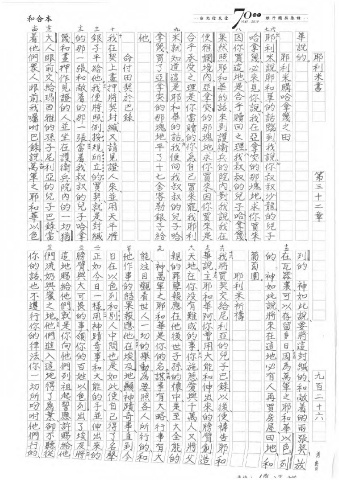 和合本
7000
耶利米書 第三十二章 九百二十六
華說的
耶利米購哈拿篾之田
耶利米說耶和華的話臨到我說你叔叔沙龍的兒子
哈拿篾必來見你說我在亞拿突的那塊地求你買來
因你買這地是合乎贖回之理我叔叔的兒子哈拿篾
果然照耶和華的話來到護衛兵的院內對我說我在
便雅憫境內亞拿突的那塊地求你買來因你買來是
合乎承受之理是你當贖的你為自己買來罷我耶利
米就知道這是耶和華的話我便向我叔叔的兒子哈
拿篾買了亞拿突的那塊地平了十七舍客勒銀子給
他
命付田契於巴錄
我在契上畫押將契封緘又請見證人來並用天平將
銀子平給他我便將照例按規所立的買契就是封緘
的那一張和敞著的那一張當著我叔叔的兒子哈拿
篾和畫押作見證的人並坐在護衛兵院內的一切猶
大人眼前交給瑪西雅的孫子尼利亞的兒子巴錄當
著他們眾人眼前我囑咐巴錄說萬軍之耶和華以色
列的 神如此說要將這封緘的和敞著的兩張契放
在瓦器裏可以存留多日因為萬軍之耶和華以色列
的 神如此說將來在這地必有人再買房屋田地和
葡萄園
耶利米祈禱
我將買契交給尼利亞的兒子巴錄以後便禱告耶和
華說主耶和華阿你曾用大能和伸出來的膀臂創造
天地在你沒有難成的事你施慈愛與千萬人又將父
親的罪孽報應在他後世子孫的懷中是至大全能的
神萬軍之耶和華是你的名謀事有大略行事有大
能注目觀看世人一切的舉動為要照各人所行的和
他作事的結果報應他在埃及地顯神蹟奇事直到今
日在以色列和別人中間也是如此使自己得了名聲
正如今日一樣用神蹟奇事和大能的手並伸出來的
膀臂與大可畏的事領你的百姓以色列出了埃及將
這地賜給他們就是你向他們列祖起誓應許賜給他
們流奶與蜜之地他們進入這地得了為業卻不聽從
你的話也不遵行你的律法你一切所吩咐他們行的